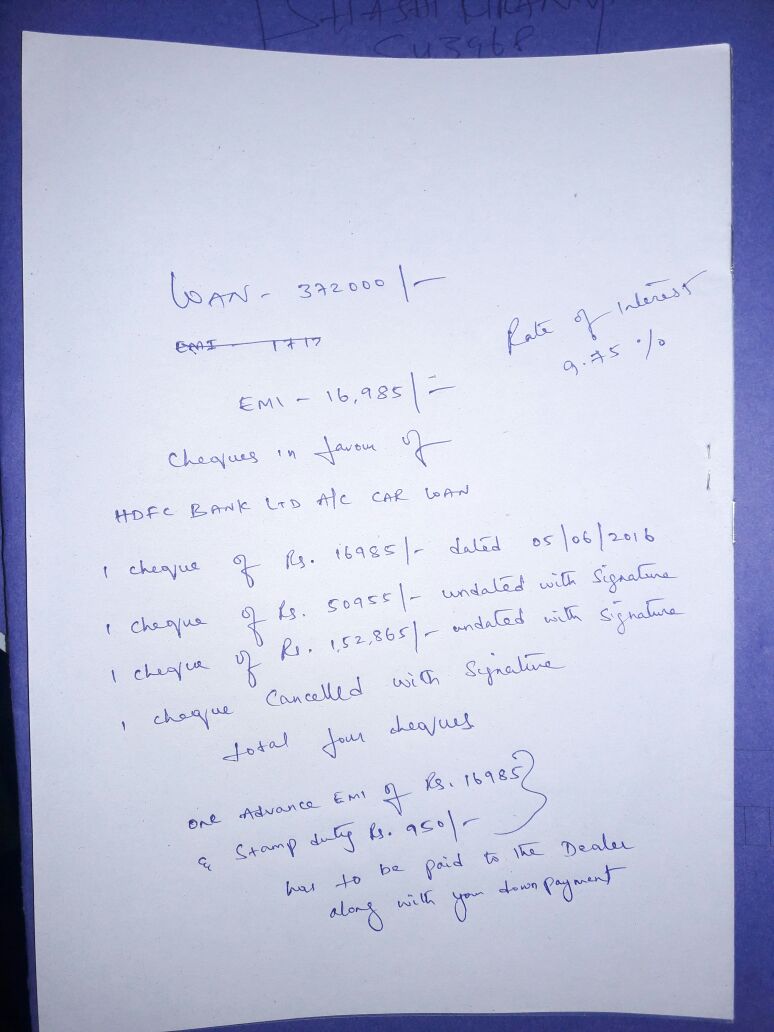 SHASHI KIRAN
LOAN - 372000/-
EMI - 1717
Rate of Interest
9.75 %
EMI - 16,985/=
Cheques in favour of
HDFC BANK LTD A/C CAR LOAN
1 cheque of Rs. 16985/- dated 05/06/2016
1 cheque of Rs. 50955/- undated with Signature
1 cheque of Rs. 1,52,865/- undated with signature
1 cheque Cancelled with Signature
total four cheques
one Advance EMI of Rs. 16985
& Stamp duty Rs. 950/-
has to be paid to the Dealer
along with your downpayment